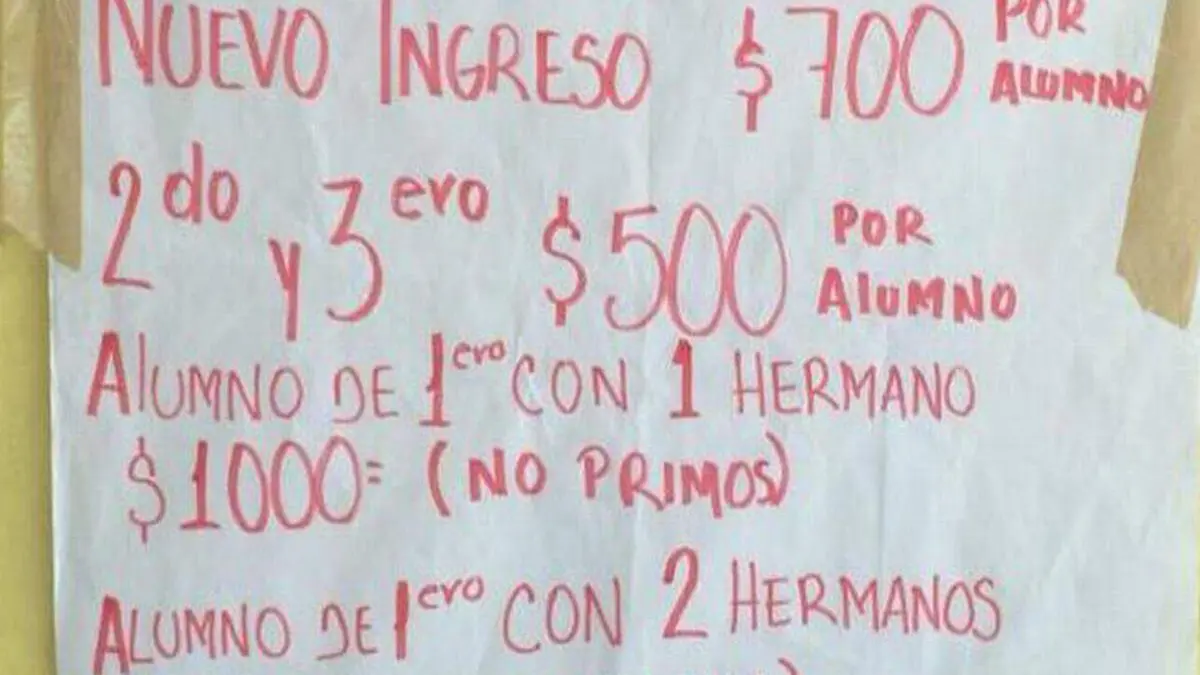 NUEVO INGRESO $700 POR ALUMNO
2do y 3ero $500 POR ALUMNO
AlUMNO DE 1ero CON 1 HERMANO
$1000= (NO PRIMOS)
ALUMNO DE 1ero CON 2 HERMANOS